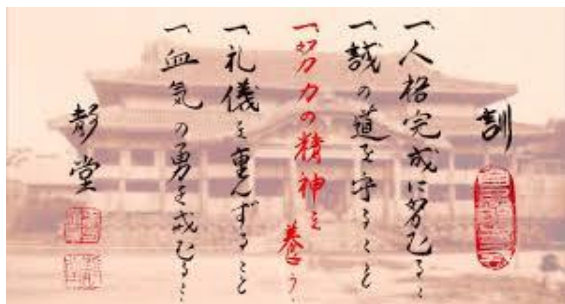 訓
一、人格完成に努むること
一、誠の道を守ること
一、努力の精神を養うこと
一、礼儀を重んずること
一、血気の勇を戒むること
堂